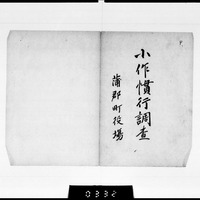 小作慣行調査
蒲郡町役場
0332